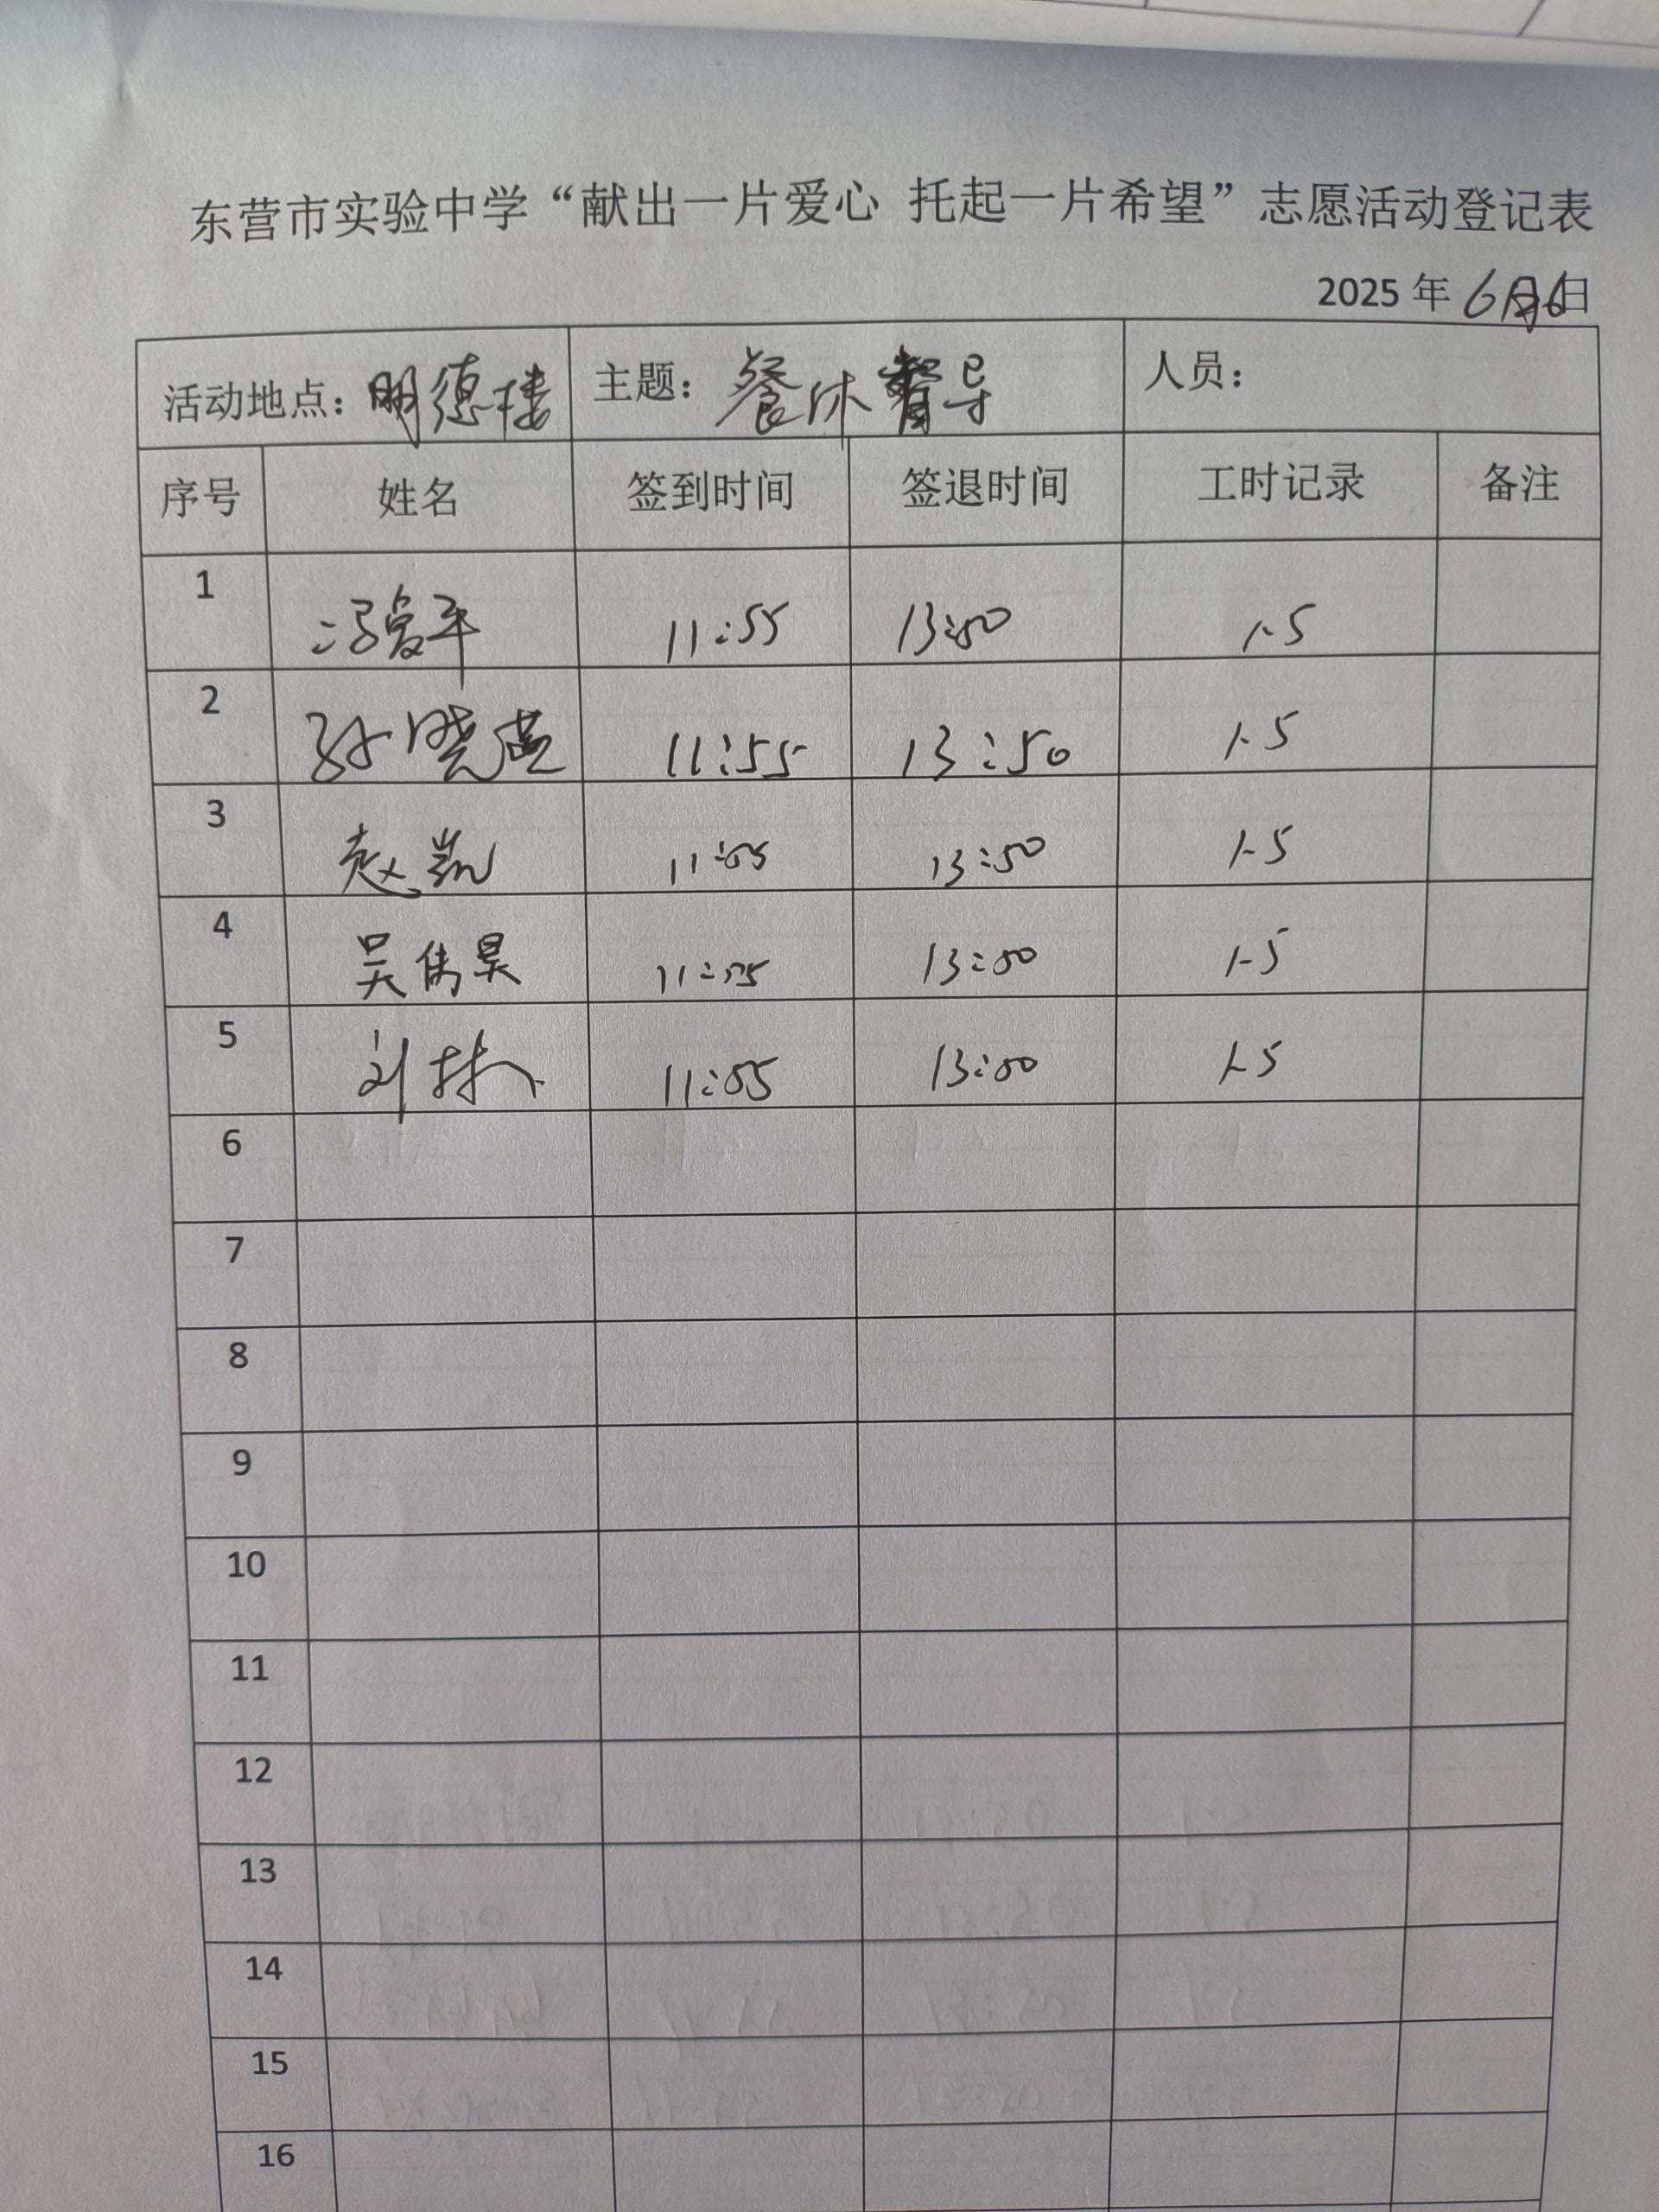 东营市实验中学“献出一片爱心 托起一片希望”志愿活动登记表
2025 年 6月6日
活动地点：明德楼 主题：餐休督导 人员：
序号 姓名 签到时间 签退时间 工时记录 备注
1 冯爱平 11:55 13:50 1.5
2 孙晓燕 11:55 13:50 1.5
3 赵凯 11:55 13:50 1.5
4 吴隽昊 11:55 13:50 1.5
5 刘林 11:55 13:50 1.5
6
7
8
9
10
11
12
13
14
15
16